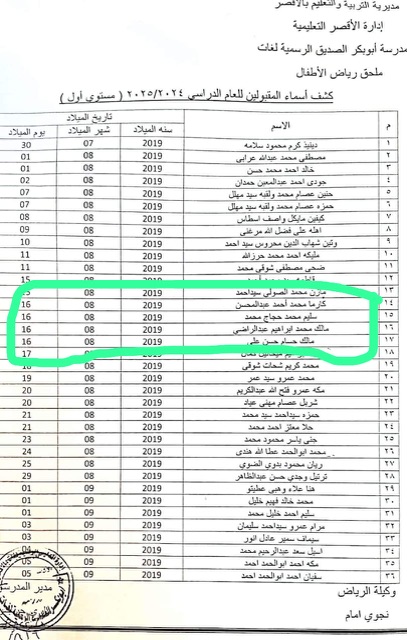 مديرية التربية والتعليم بالأقصر
إدارة الأقصر التعليمية
مدرسة أبوبكر الصديق الرسمية لغات
ملحق رياض الأطفال
كشف أسماء المقبولين للعام الدراسي ٢٠٢٥/٢٠٢٤ ( مستوي أول )
م الاسم تاريخ الميلاد
سنه الميلاد شهر الميلاد يوم الميلاد
١ كرم محمود سلامه 2019 07 30
٢ مصطفي محمد عبدالله عرابي 2019 08 01
٣ خالد احمد محمد حسن 2019 08 01
٤ جودي احمد عبدالمعين حمدان 2019 08 02
٥ عصام محمد ولقبه سيد مهلل 2019 08 07
٦ حمزه عصام محمد ولقبه سيد مهلل 2019 08 07
٧ كيفين مايكل واصف اسطاس 2019 08 08
٨ علي فضل الله مرغني 2019 08 09
٩ وتين شهاب الدين محروس سيد احمد 2019 08 10
١٠ مليكه احمد محمد حرزالله 2019 08 11
١١ ضحي مصطفي شوقي محمد 2019 08 11
١٢ 2019 08 15
١٣ مازن محمد الصولي سيداحمد 2019 08
١٤ كارما محمد أحمد عبدالمحسن 2019 08 16
١٥ سليم محمد حجاج محمد 2019 08 16
١٦ مالك محمد ابراهيم عبدالراضي 2019 08 16
١٧ مالك حسام حسن علي 2019 08 16
١٨ 2019 08 17
١٩ محمد كريم شحات شوقي 2019 08 18
٢٠ محمد عمرو سيد عمر 2019 08 19
٢١ مكه عمرو فتح الله عبدالكريم 2019 08 20
٢٢ شربل عصام مهني عياد 2019 08 20
٢٣ حمزه سيداحمد سيد محمد 2019 08 21
٢٤ حلا معتز احمد محمد 2019 08 21
٢٥ جني ياسر محمود محمد 2019 08 23
٢٦ محمد ابوالحمد عطا الله هندي 2019 08 24
٢٧ ريان محمود بدوي الضوي 2019 08 25
٢٨ ترتيل وجدي حسن عبدالظاهر 2019 08 29
٢٩ هنا علاء وهبي عطيتو 2019 09 01
٣٠ محمد خالد فهيم خليل 2019 09 01
٣١ سليم احمد خليل محمد 2019 09 01
٣٢ مرام عمرو سيداحمد سليمان 2019 09 03
٣٣ سيماف سمير عادل انور 2019 09 03
٣٤ اسيل سعد عبدالرحيم محمد 2019 09 04
٣٥ مكه احمد ابوالحمد احمد 2019 09 05
٣٦ سفيان احمد ابوالحمد احمد 2019 09 05
وكيلة الرياض
مدير المدرسة
نجوي امام